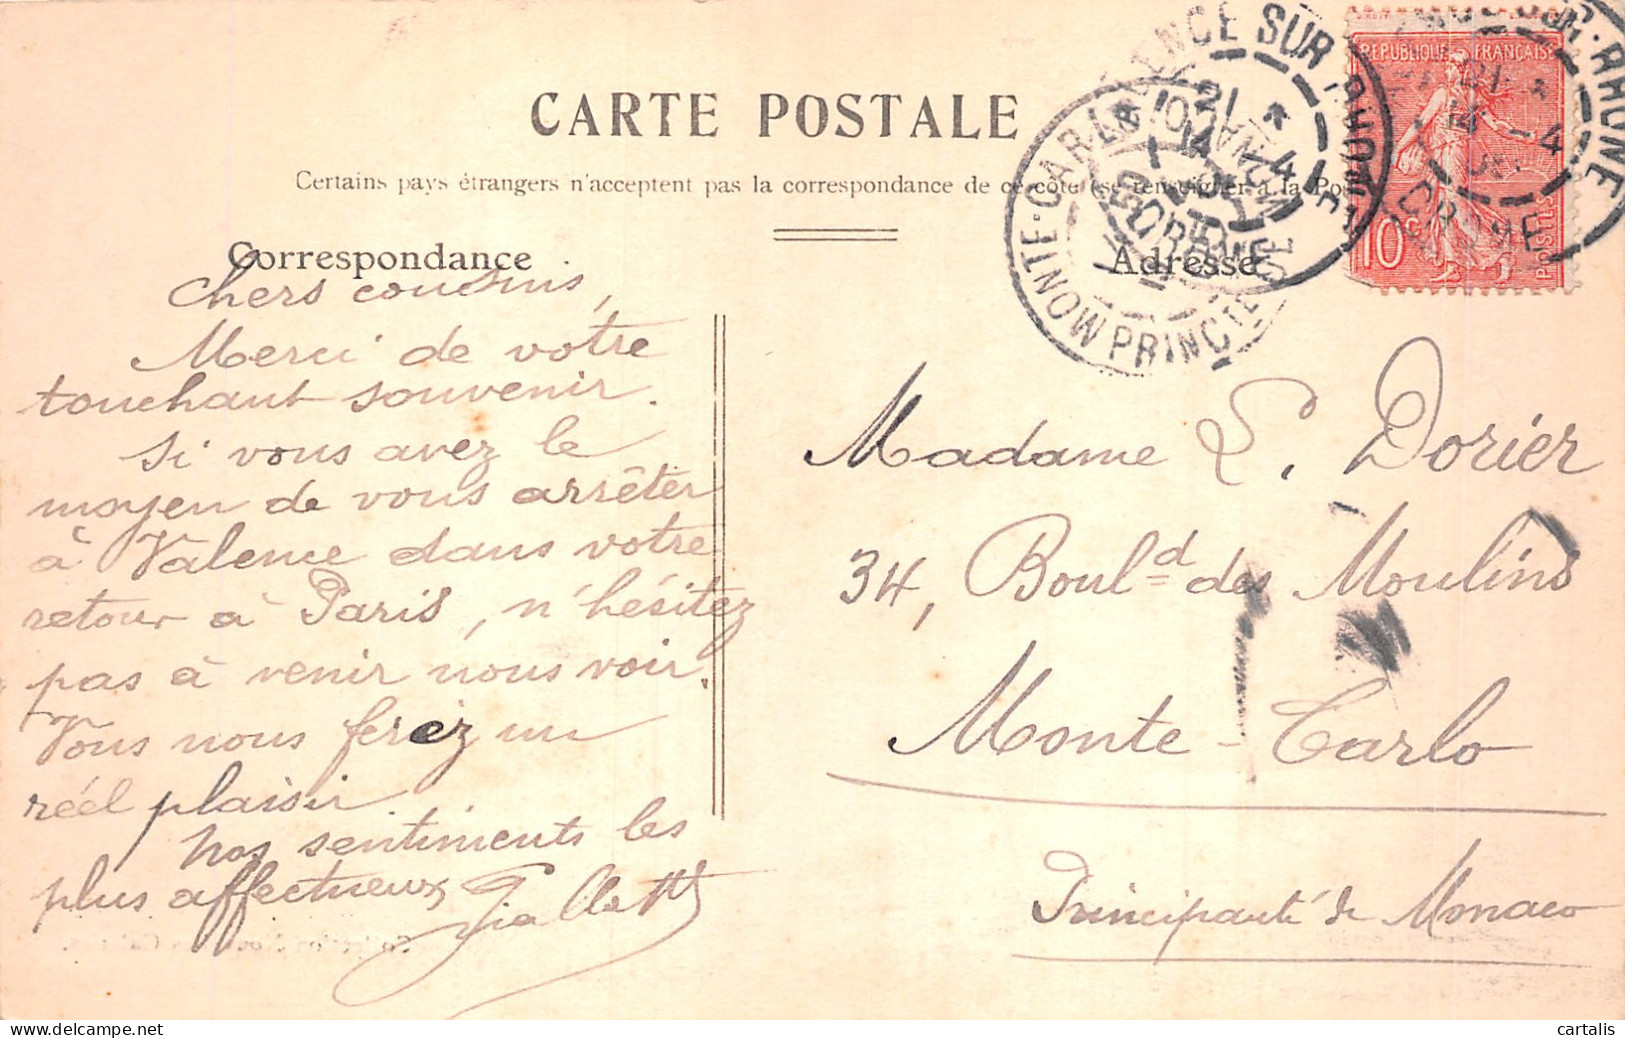 CARTE POSTALE
Certains pays étrangers n'acceptent pas la correspondance de ce côté (se renseigner à la Poste
Correspondance
Adresse
Chers cousins,
Merci de votre
touchant souvenir.
Si vous avez le
moyen de vous arrêter
à Valence dans votre
retour à Paris, n'hésitez
pas à venir nous voir.
Vous nous ferez un
réel plaisir
Nos sentiments les
plus affectueux
Madame L. Dorier
34, Boul.d des Moulins
Monte-Carlo
Principauté de Monaco
REPUBLIQUE FRANÇAISE
10c
POSTES
VALENCE SUR RHONE
DROME
MONTE-CARLO
PRINCIPTE DE MONACO
cartalis